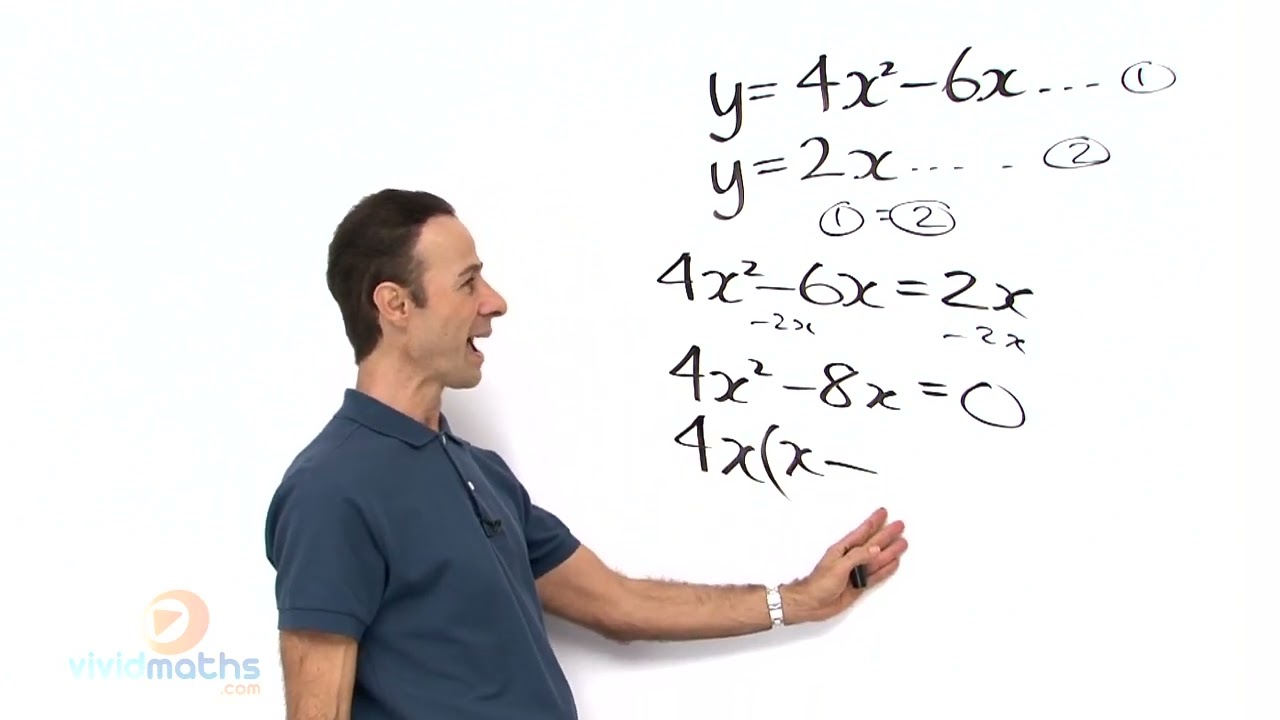 y = 4x² - 6x .... ①
y = 2x .... . ②
① = ②
4x² - 6x = 2x
-2x -2x
4x² - 8x = 0
4x(x -
vividmaths
.com